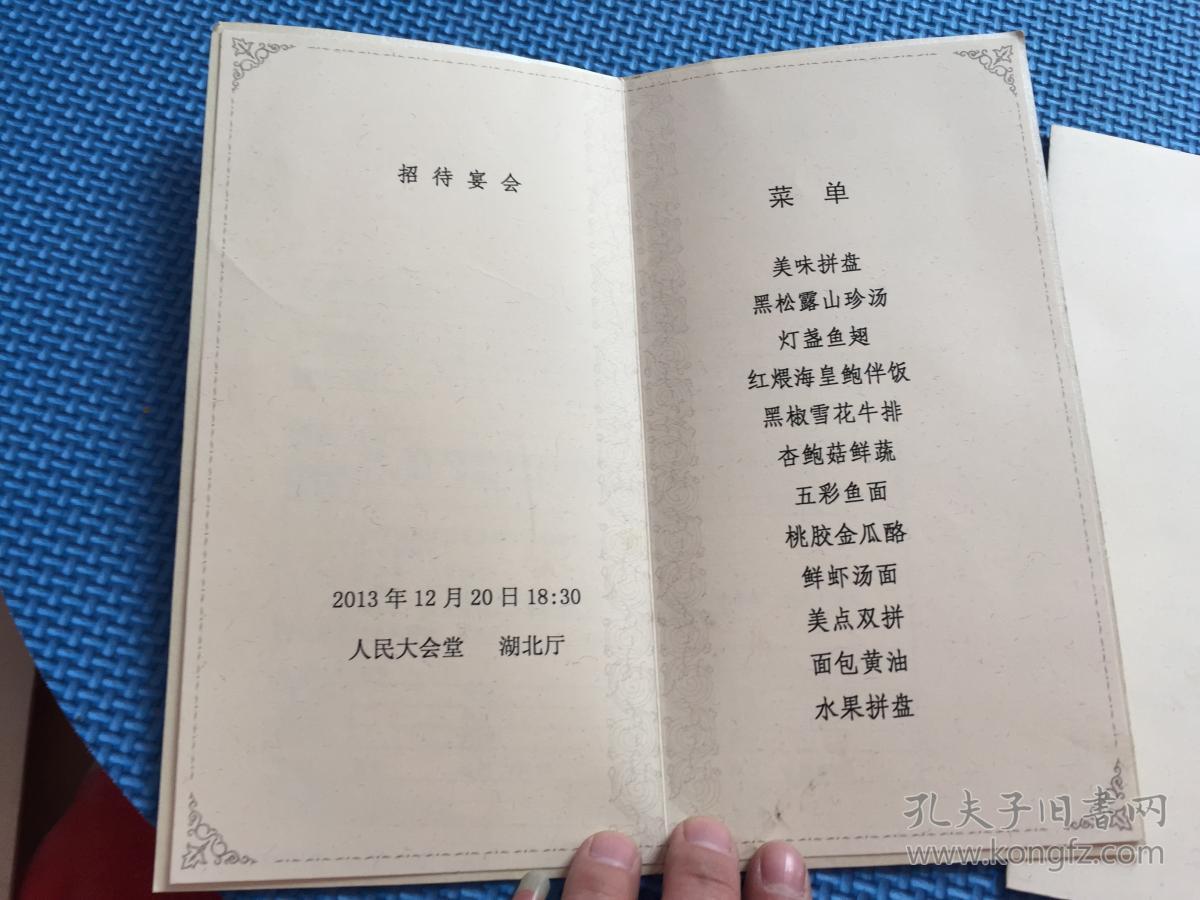 招待宴会
2013年12月20日18:30
人民大会堂 湖北厅
菜单
美味拼盘
黑松露山珍汤
灯盏鱼翅
红煨海皇鲍伴饭
黑椒雪花牛排
杏鲍菇鲜蔬
五彩鱼面
桃胶金瓜酪
鲜虾汤面
美点双拼
面包黄油
水果拼盘
孔夫子旧书网
www.kongfz.com